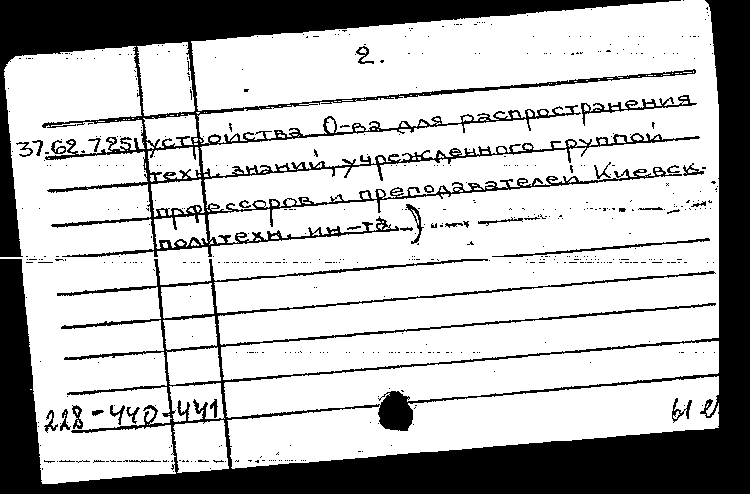 2.
37.62.7.251 устройства О-ва для распространения
техн. знаний, учрежденного группой
прфессоров и преподавателей Киевск.
политехн. ин-та.)
228-440-441